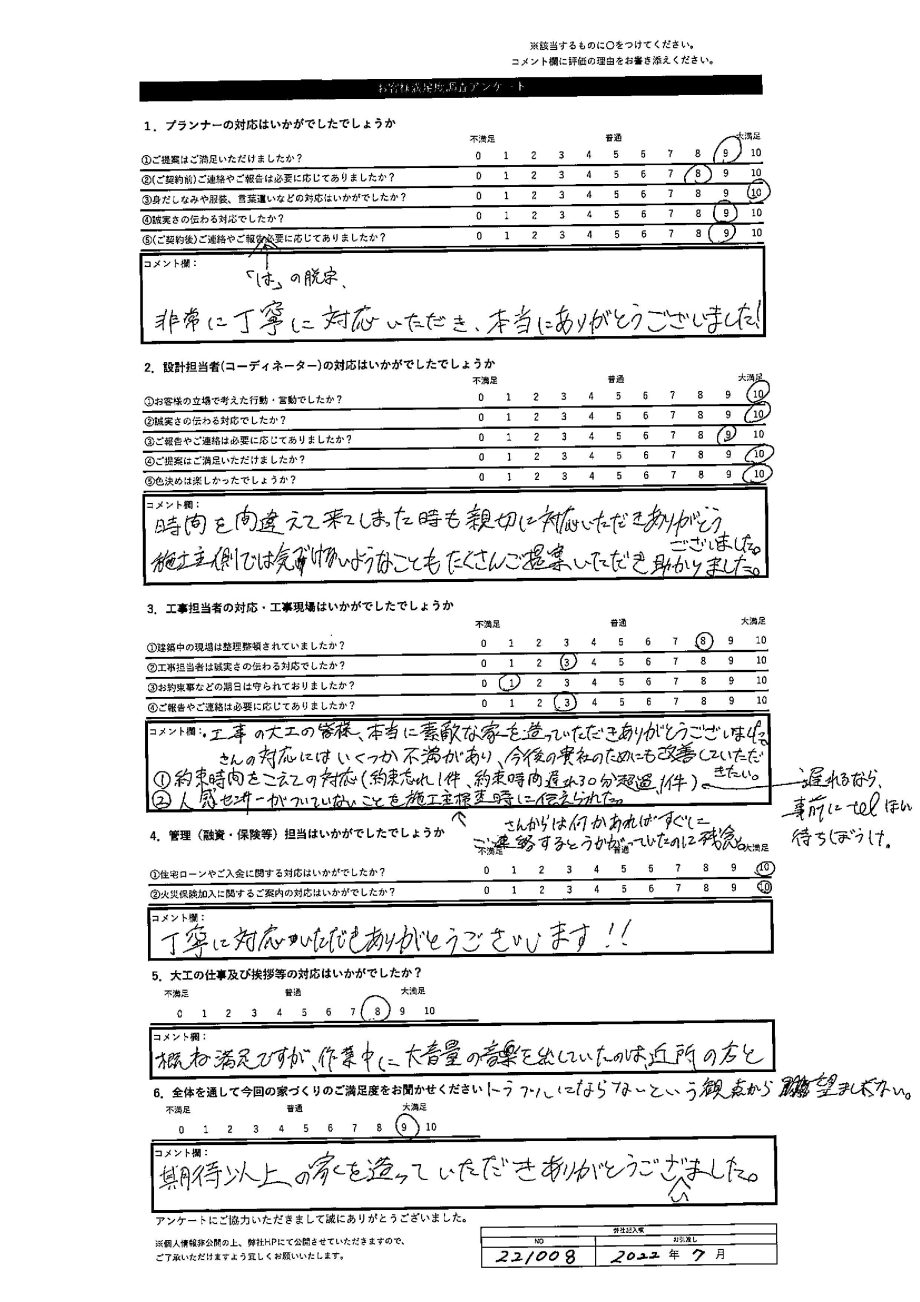 ※該当するものに〇をつけてください。
コメント欄に評価の理由をお書き添えください。
お客様満足度調査アンケート
1．プランナーの対応はいかがでしたでしょうか
不満足 普通 大満足
①ご提案はご満足いただけましたか？ 0 1 2 3 4 5 6 7 8 9 10
②(ご契約前)ご連絡やご報告は必要に応じてありましたか？ 0 1 2 3 4 5 6 7 8 9 10
③身だしなみや服装、言葉遣いなどの対応はいかがでしたか？ 0 1 2 3 4 5 6 7 8 9 10
④誠実さの伝わる対応でしたか？ 0 1 2 3 4 5 6 7 8 9 10
⑤(ご契約後)ご連絡やご報告必要に応じてありましたか？ 0 1 2 3 4 5 6 7 8 9 10
コメント欄：
「は」の脱字、
非常に丁寧に対応いただき、本当にありがとうございました!
2．設計担当者(コーディネーター)の対応はいかがでしたでしょうか
不満足 普通 大満足
①お客様の立場で考えた行動・言動でしたか？ 0 1 2 3 4 5 6 7 8 9 10
②誠実さの伝わる対応でしたか？ 0 1 2 3 4 5 6 7 8 9 10
③ご報告やご連絡は必要に応じてありましたか？ 0 1 2 3 4 5 6 7 8 9 10
④ご提案はご満足いただけましたか？ 0 1 2 3 4 5 6 7 8 9 10
⑤色決めは楽しかったでしょうか？ 0 1 2 3 4 5 6 7 8 9 10
コメント欄：
時間を間違えて来てしまった時も親切に対応いただきありがとう
ございました。
施工主側では気づけないようなこともたくさんご提案いただき助かりました。
3．工事担当者の対応・工事現場はいかがでしたでしょうか
不満足 普通 大満足
①建築中の現場は整理整頓されていましたか？ 0 1 2 3 4 5 6 7 8 9 10
②工事担当者は誠実さの伝わる対応でしたか？ 0 1 2 3 4 5 6 7 8 9 10
③お約束事などの期日は守られておりましたか？ 0 1 2 3 4 5 6 7 8 9 10
④ご報告やご連絡は必要に応じてありましたか？ 0 1 2 3 4 5 6 7 8 9 10
コメント欄：・工事の大工の皆様、本当に素敵な家を造っていただきありがとうございました。
さんの対応にはいくつか不満があり、今後の貴社のためにも改善していただ
きたい。
①約束時間をこえての対応(約束忘れ1件、約束時間遅れ30分超過1件)
遅れるなら、
事前にtelほしい
待ちぼうけ。
②人感センサーがついていないことを施工主検査時に伝えられた。
さんからは何かあればすぐに
ご連絡するとうかがっていたのに残念。
4．管理（融資・保険等）担当はいかがでしたでしょうか
不満足 普通 大満足
①住宅ローンやご入金に関する対応はいかがでしたか？ 0 1 2 3 4 5 6 7 8 9 10
②火災保険加入に関するご案内の対応はいかがでしたか？ 0 1 2 3 4 5 6 7 8 9 10
コメント欄：
丁寧に対応いただきありがとうございます!!
5．大工の仕事及び挨拶等の対応はいかがでしたか？
不満足 普通 大満足
0 1 2 3 4 5 6 7 8 9 10
コメント欄：
概ね満足ですが、作業中に大音量の音楽を出していたのは、近所の方と
トラブルにならないという観点から望ましくない。
6．全体を通して今回の家づくりのご満足度をお聞かせください
不満足 普通 大満足
0 1 2 3 4 5 6 7 8 9 10
コメント欄：
期待以上の家を造っていただきありがとうございました。
アンケートにご協力いただきまして誠にありがとうございました。
※個人情報非公開の上、弊社HPにて公開させていただきますので、
ご了承いただけますよう宜しくお願いいたします。
弊社記入欄
NO お引渡し
221008 2022年7月